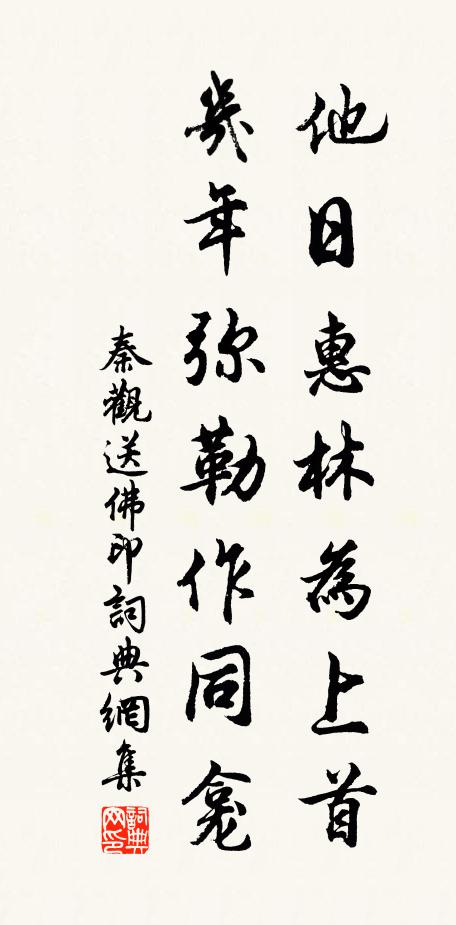 他日惠林為上首
幾年弥勒作同龕
秦觀送佛印詞典網集
詞典网印